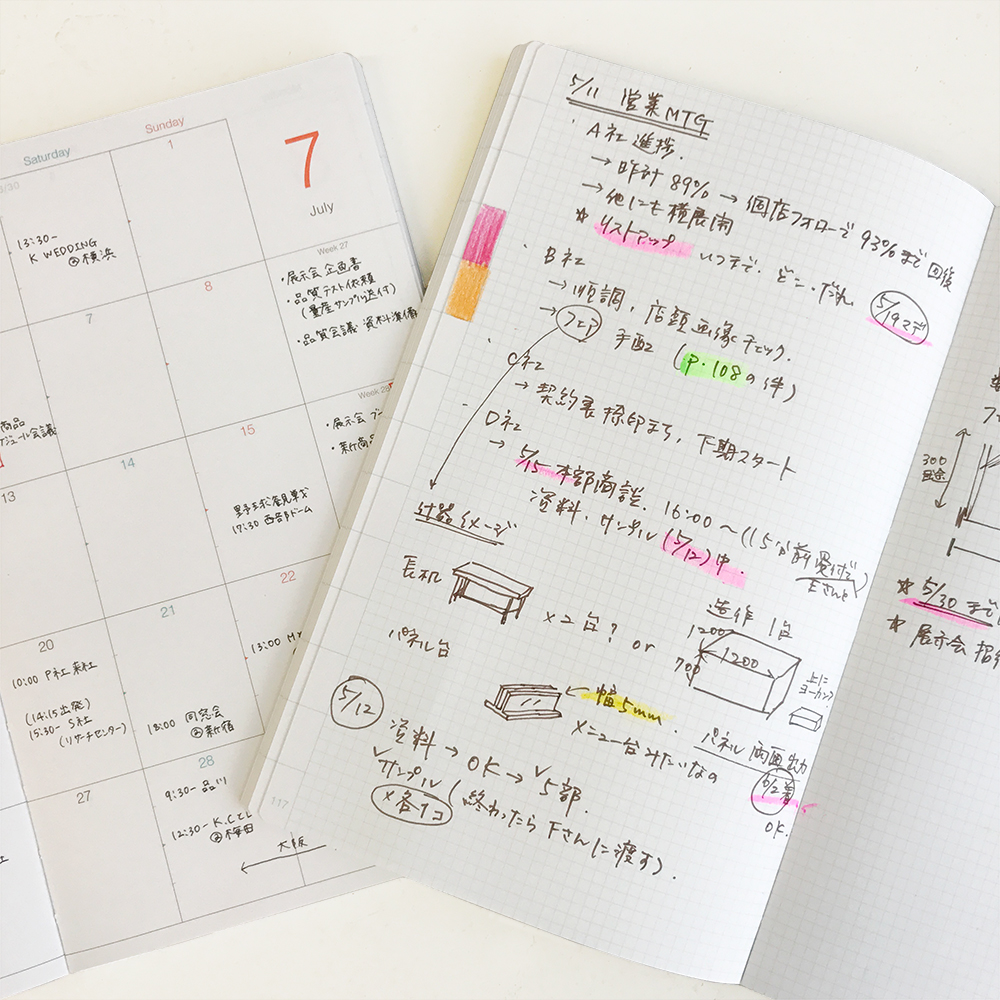 Saturday
Sunday
7
July
/30
1
13:30-
K WEDDING
@横浜
Week 27
・展示会 企画書
・品質テスト依頼
(量産サンプル送付)
・品質会議・資料準備
7
8
Week 28
・展示会 ブー
・新商品
商品
ジュール会議
13
14
15
野球観戦
17:30 西部ドーム
20
10:00 P社来社
(14:15出発)
15:30- S社
(リサーチセンター)
21
18:00 同窓会
@新宿
22
13:00 M
27
28
9:30- 品川
12:30- K.C.EL
@梅田
大阪
社
5/11 営業MTG
・A社進捗.
→昨計 89% → 個店フォローで 93%まで回復
→他にも横展開
☆ リストアップ いつまで、どこ・だれ
5/19マデ
・B社
→順調、店頭画像チェック.
→フェア 手配 (P.108の件)
・C社
→契約書捺印まち、下期スタート
・D社
→5/15 本部商談. 16:00〜 (15分前受付で)
Eさんと
資料、サンプル(5/12)中.
什器イメージ
長机
×2台? or
造作 1台
1200
1200
700
上に
パネル台
幅5mm
メニュー台みたいなの
パネル 両面出力
6/2着
OK.
5/12
資料 → OK → 5部.
サンプル (終わったらFさんに渡す).
×各1コ
117
300
☆ 5/30 まで
☆ 展示会 招